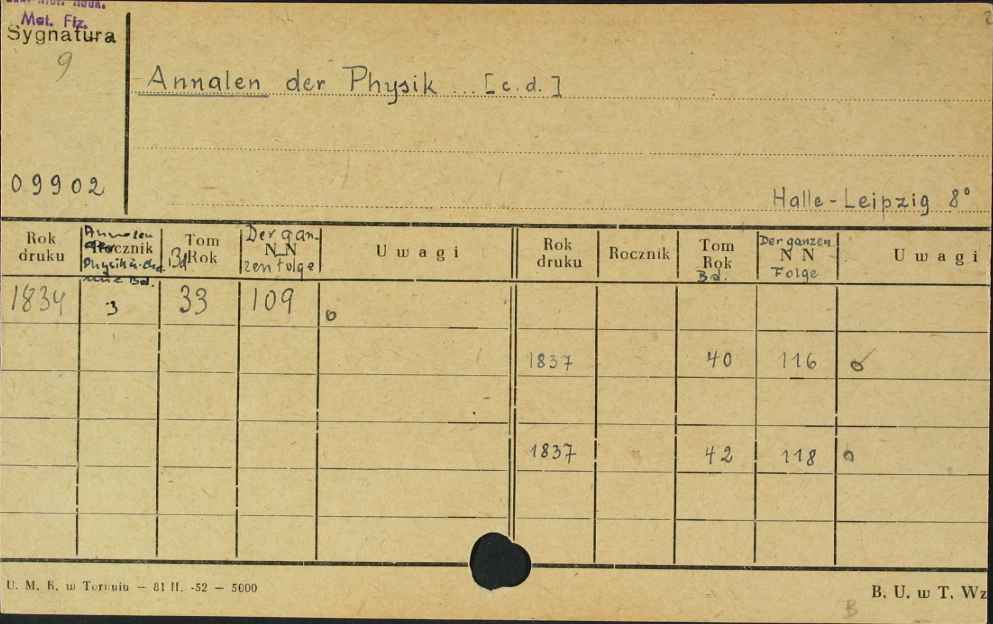 Mat. Fiz.
Sygnatura
9
Annalen der Physik ... [c.d.]
09902
Halle-Leipzig 8°
Rok druku | Annalen Rocznik Physik u. Bd. | Tom Bd Rok | Der gan- N N zen Folge | Uwagi | Rok druku | Rocznik | Tom Rok Bd. | Der ganzen N N Folge | Uwagi
1834 3 33 109 o
1837 40 116 o
1837 42 118 o
U. M. K. w Toruniu — 81 II. -52 — 5000
B. U. w T. Wz
B